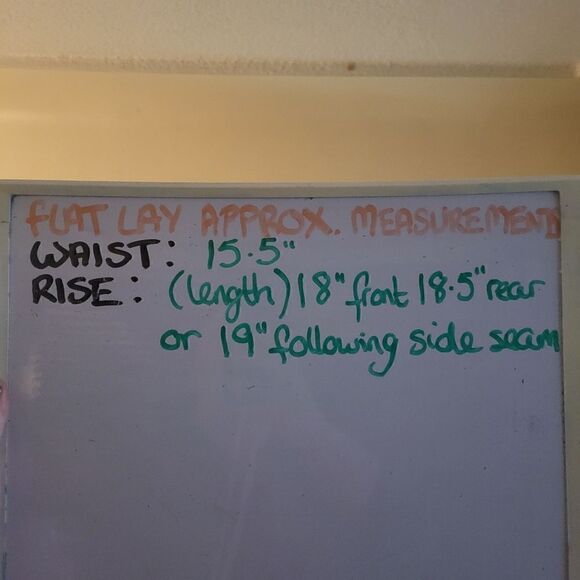 FLAT LAY APPROX. MEASUREMENTS
WAIST: 15.5"
RISE: (length) 18" front 18.5" rear
or 19" following side seam